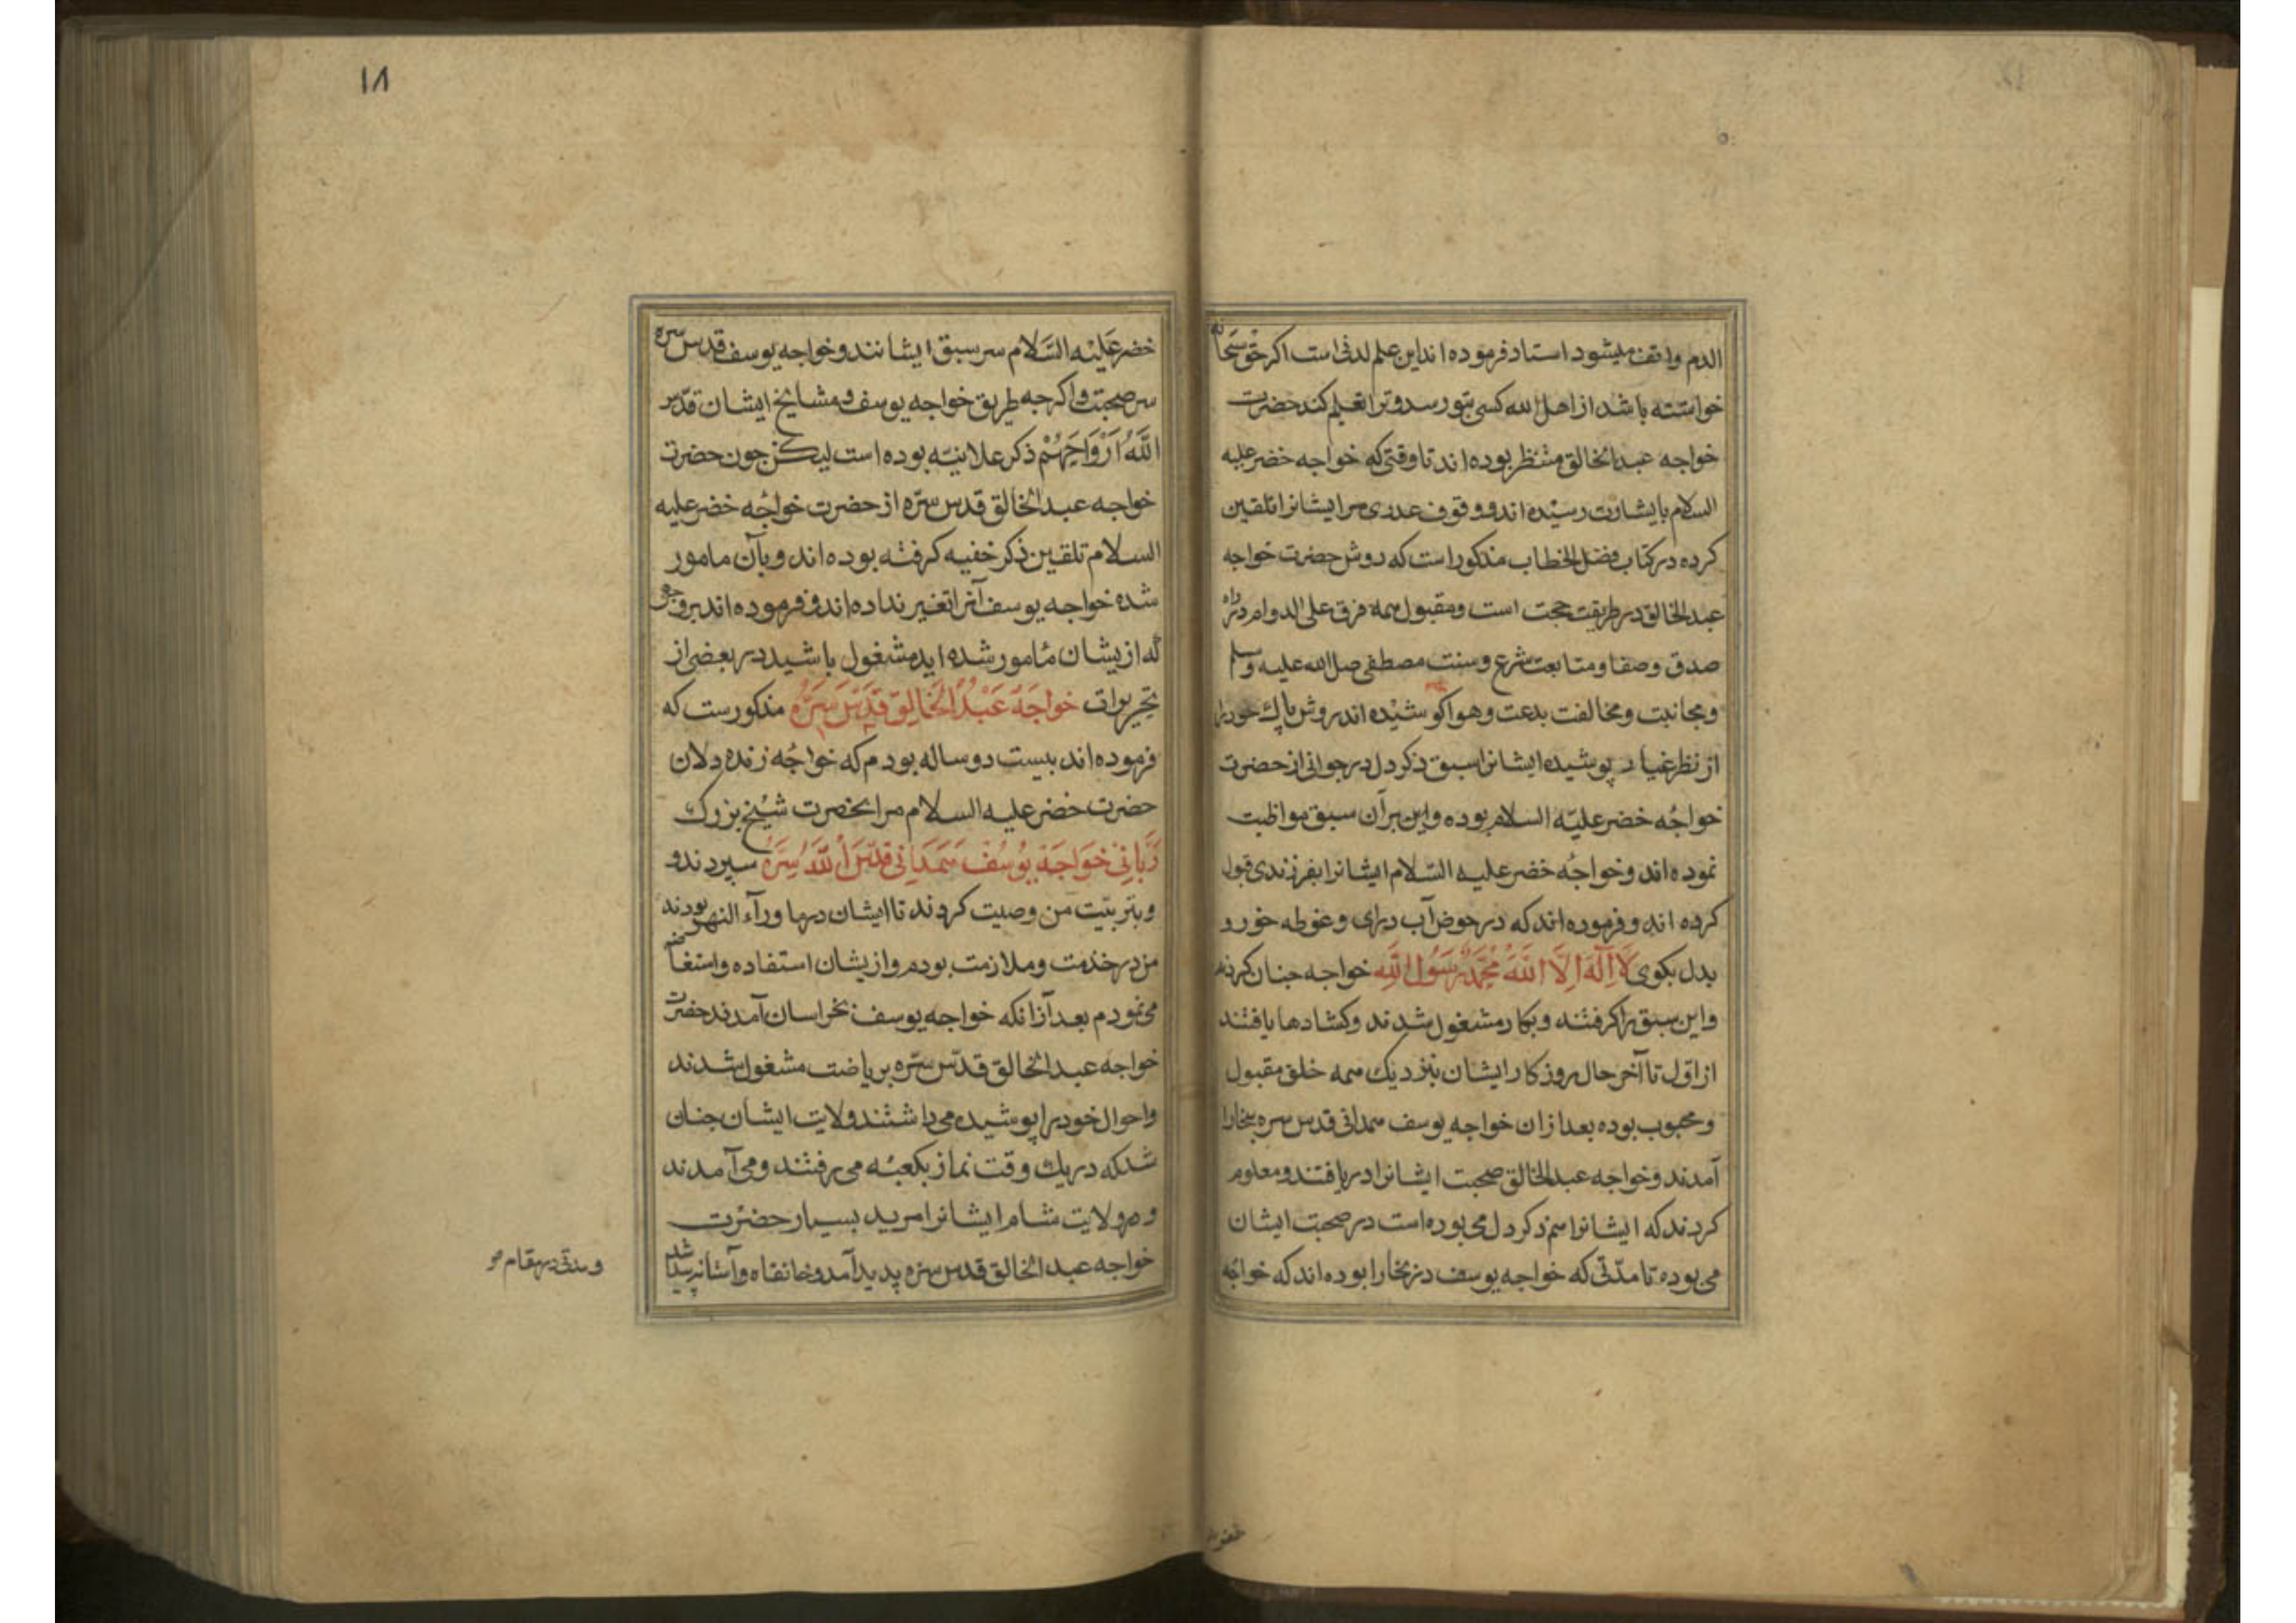 الدم واقف میشود استاد فرموده اند این علم لدنی است اکر حق سبحانه
خواسته باشد از اهل الله کسی بتو رسد و ترا تعلیم کند حضرت
خواجه عبدالخالق منتظر بوده اند تا وقتی که خواجه خضر علیه
السلام بایشان رسیده اند و وقوف عددی مر ایشانرا تلقین
کرده در کتاب فصل الخطاب مذکور است که روش حضرت خواجه
عبدالخالق در طریقت حجت است و مقبول همه فرق علی الدوام در راه
صدق و صفا و متابعت شرع و سنت مصطفی صلی الله علیه وسلم
و مجانبت و مخالفت بدعت و هوا کوشیده اند روش پاک خود را
از نظر غیار پوشیده ایشانرا سبق ذکر دل در جوانی از حضرت
خواجه خضر علیه السلام بوده و این بر آن سبق مواظبت
نموده اند و خواجه خضر علیه السلام ایشانرا بفرزندی قبول
کرده اند و فرموده اند که در حوض آب درای و غوطه خور و
بدل بکوی لَا اِلٰهَ اِلَّا اللّٰهُ مُحَمَّدٌ رَسُولُ اللّٰهِ خواجه جنان کردند
و این سبق را کرفتند و بکار مشغول شدند و کشادها یافتند
از اول تا آخر حال روزکار ایشان بنزدیک همه خلق مقبول
و محبوب بوده بعد از ان خواجه یوسف همدانی قدس سره ببخارا
آمدند و خواجه عبدالخالق صحبت ایشانرا دریافتند و معلوم
کردند که ایشانرا هم ذکر دل می بوده است در صحبت ایشان
می بوده تا مدتی که خواجه یوسف در بخارا بوده اند که خواجه
خضر
۱۸
خضر عَلَیْه السَّلام سر سبق ایشانند و خواجه یوسف قدس سره
سر صحبت و اکرجه طریق خواجه یوسف و مشایخ ایشان قدس
اللَّهُ اَرْوَاحَهُمْ ذکر علانیه بوده است لیکن جون حضرت
خواجه عبدالخالق قدس سره از حضرت خواجه خضر علیه
السلام تلقین ذکر خفیه کرفته بوده اند و بآن مامور
شده خواجه یوسف آنرا تغیر نداده اند و فرموده اند بروجهی
که ازیشان مامور شده اید مشغول باشید در بعضی از
تحریرات خواجَهٔ عَبْدُ الْخَالِق قَدَّسَ سَرَّهُ مذکورست که
فرموده اند بیست دو ساله بودم که خواجه زنده دلان
حضرت خضر علیه السلام مرا بحضرت شیخ بزرک
رَبَّانِی خَواجَه یُوسُفْ هَمَدَانِی قَدَّسَ اللَّهُ سِرَّهُ سپردند و
و بتربیت من وصیت کردند تا ایشان در ما ورآء النهر بودند
من در خدمت و ملازمت بودم و ازیشان استفاده و استفاضه
می نمودم بعد از انکه خواجه یوسف بخراسان آمدند حضرت
خواجه عبدالخالق قدس سره بریاضت مشغول شدند
و احوال خود را پوشیده می داشتند ولایت ایشان جنان
شد که در یک وقت نماز بکعبه می رفتند و می آمدند
و در ولایت شام ایشانرا مرید بسیار حضرت
خواجه عبدالخالق قدس سره پدید آمد و خانقاه و آستانه پیدا شد
و مدتی در مقام